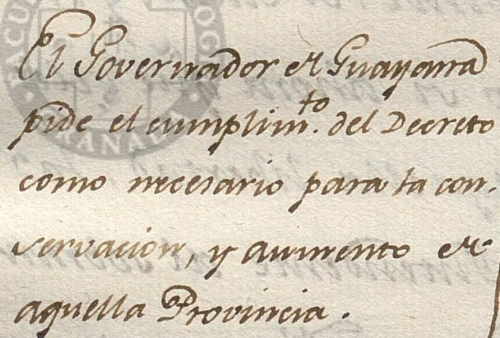 El Governador de Guayana
pide el cumplim.to del Decreto
como necesario para la con-
servacion, y aumento de
aquella Provincia.